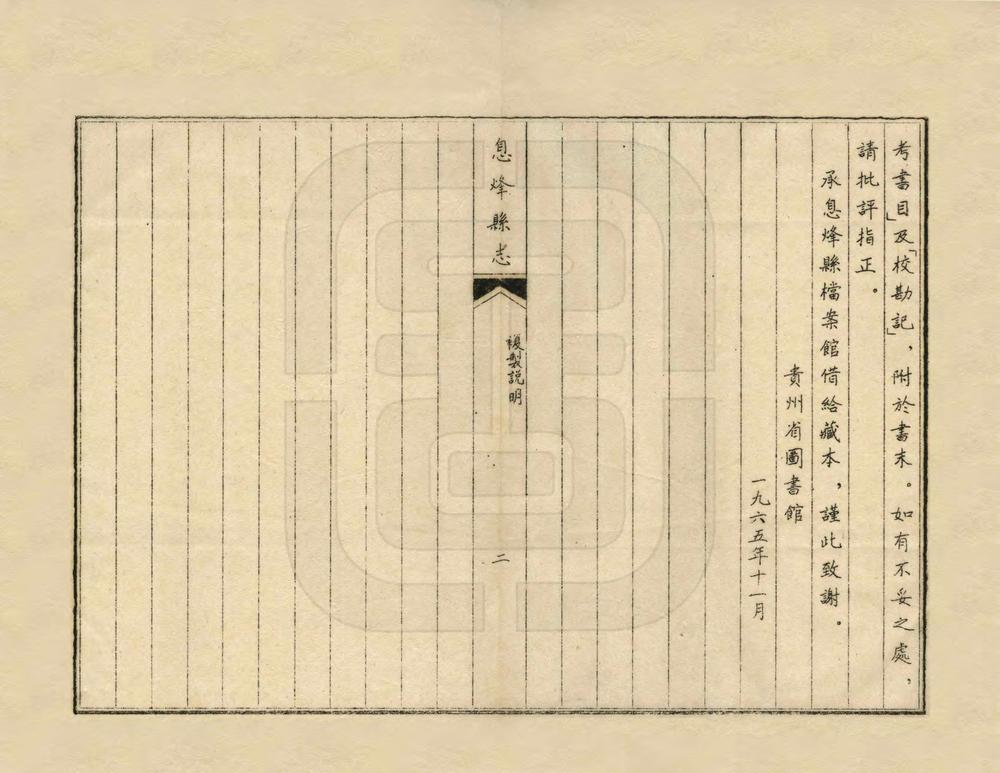 考書目」及「校勘記」，附於書末。如有不妥之處，
請批評指正。
承息烽縣檔案館借給藏本，謹此致謝。
貴州省圖書館
一九六五年十一月
息烽縣志
複製説明
二